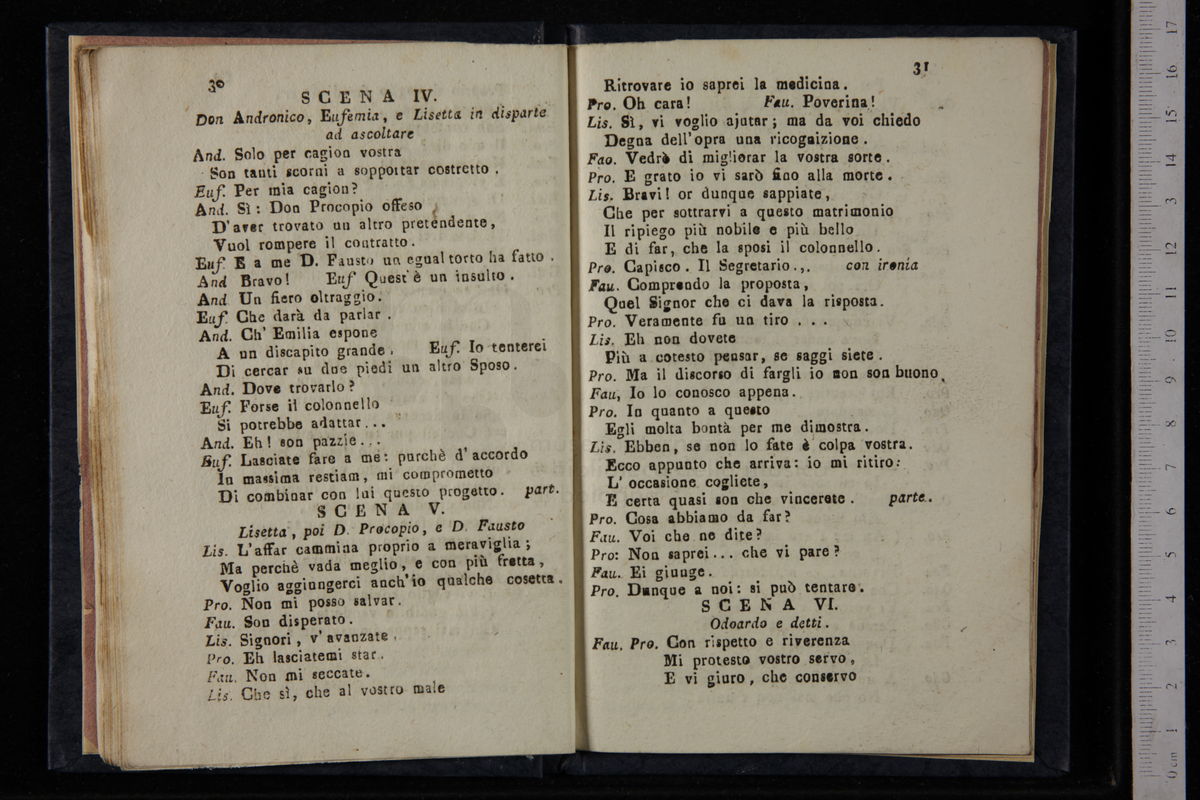 30
SCENA IV.
Don Andronico, Eufemia, e Lisetta in disparte
ad ascoltare
And. Solo per cagion vostra
Son tanti scorni a soppoitar costretto.
Euf. Per mia cagion?
And. Sì: Don Procopio offeso
D'aver trovato un altro pretendente,
Vuol rompere il contratto.
Euf. E a me D. Fausto un egual torto ha fatto.
And Bravo! Euf Quest'è un insulto.
And Un fiero oltraggio.
Euf. Che darà da parlar.
And. Ch' Emilia espone
A un discapito grande. Euf. Io tenterei
Di cercar su due piedi un altro Sposo.
And. Dove trovarlo?
Euf. Forse il colonnello
Si potrebbe adattar...
And. Eh! son pazzie...
Euf. Lasciate fare a me: purchè d'accordo
In massima restiam, mi comprometto
Di combinar con lui questo progetto. part.
SCENA V.
Lisetta, poi D. Procopio, e D. Fausto
Lis. L'affar cammina proprio a meraviglia;
Ma perchè vada meglio, e con più fretta,
Voglio aggiungerci anch'io qualche cosetta.
Pro. Non mi posso salvar.
Fau. Son disperato.
Lis. Signori, v'avanzate.
Pro. Eh lasciatemi star.
Fau. Non mi seccate.
Lis. Che sì, che al vostro male
31
Ritrovare io saprei la medicina.
Pro. Oh cara! Fau. Poverina!
Lis. Sì, vi voglio ajutar; ma da voi chiedo
Degna dell'opra una ricognizione.
Fao. Vedrò di migliorar la vostra sorte.
Pro. E grato io vi sarò fino alla morte.
Lis. Bravi! or dunque sappiate,
Che per sottrarvi a questo matrimonio
Il ripiego più nobile e più bello
E di far, che la sposi il colonnello.
Pro. Capisco. Il Segretario.,. con ironia
Fau. Comprendo la proposta,
Quel Signor che ci dava la risposta.
Pro. Veramente fu un tiro . . .
Lis. Eh non dovete
Più a cotesto pensar, se saggi siete.
Pro. Ma il discorso di fargli io non son buono.
Fau, Io lo conosco appena.
Pro. In quanto a questo
Egli molta bontà per me dimostra.
Lis. Ebben, se non lo fate è colpa vostra.
Ecco appunto che arriva: io mi ritiro:
L'occasione cogliete,
E certa quasi son che vincerete. parte.
Pro. Cosa abbiamo da far?
Fau. Voi che ne dite?
Pro: Non saprei... che vi pare?
Fau. Ei giunge.
Pro. Dunque a noi: si può tentare.
SCENA VI.
Odoardo e detti.
Fau. Pro. Con rispetto e riverenza
Mi protesto vostro servo,
E vi giuro, che conservo
0 cm 1 2 3 4 5 6 7 8 9 10 11 12 13 14 15 16 17